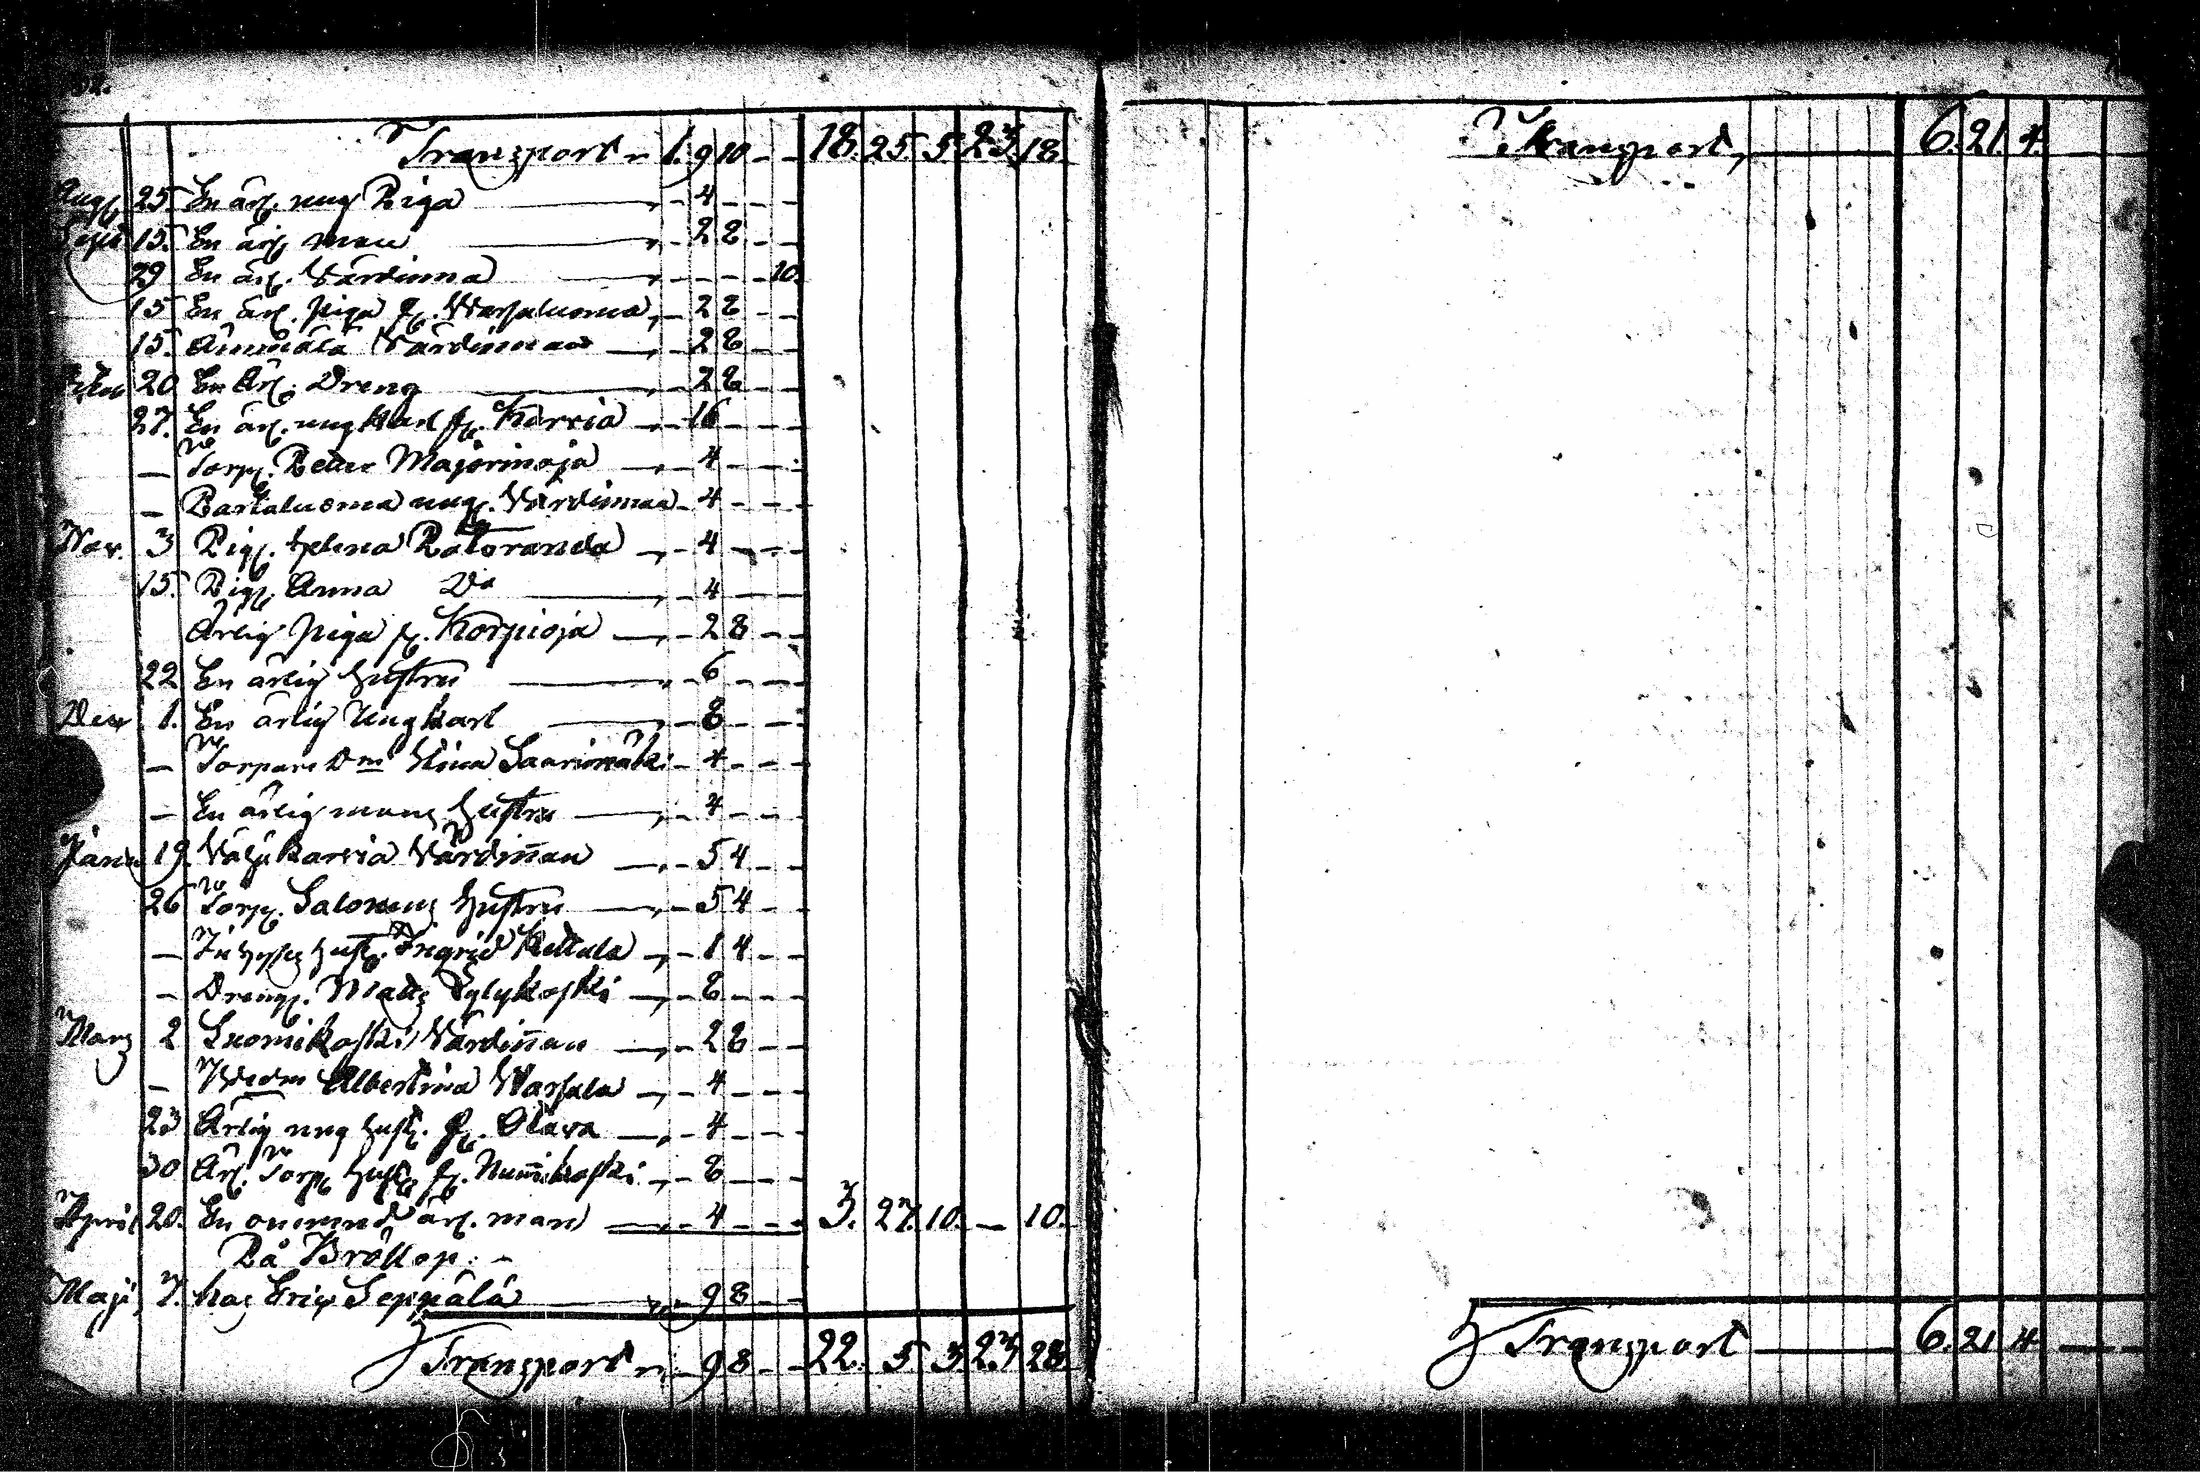 32.
Transport „ 1. 9 10 - - 18. 25. 5. 23. 18.
Aug. 25. En ärl. ung Piga „ - 4 - - -
Sept. 15. En ärl. man „ - 2 8 - -
29 En ärl. Värdinna „ - - - - 10.
15 En ärl. piga fr. Warsaluoma „ - 2 8 - -
15. Ämmälä Värdinnan „ - 2 8 - -
20 En Ärl. Dreng „ - 2 8 - -
27. En ärl. ung Karl fr. Karvia „ - 16 - -
— Torp. Petter Majorinoja „ - 4 - - -
— Partaluoma ung. Värdinnan - 4 - - -
Nov. 3 Pig. Helena Rätöranda „ - 4 - - -
15. Pig. Anna Do „ - 4 - - -
Ärlig piga fr. Korpioja „ - 2 8 - -
22 En ärlig hustru „ - 6 - - -
Dec. 1. En ärlig Ung karl „ - 8 - - -
— Torpare Dm Stina Saarimäki - 4 - - -
— En ärlig mans hustru „ - 4 - - -
Janu. 19. Väljä Karvia Värdin̄an „ - 5 4 - -
26 Torp. Salomons hustru „ - 5 4 - -
— hust. Ingrid Kettula „ - 1 4 - -
— Drengs. Matts Yglykoski „ - 8 - - -
Mars 2 Luomikoski Värdin̄an „ - 2 8 - -
— Albertina Warsala „ - 4 - - -
23 Ärlig ung hust. fr. Alava „ - 4 - - -
30 Ärl. Torp. hust. fr. Num̄ikoski „ - 8 - - -
April 20. En onemnd ärl. man „ - 4 - - - 3. 27. 10. — 10.
På Bröllop: -
Maji 7. hos Eric Seppälä „ - 9 8 - -
Transport „ - 9 8 - - 22. 5 3. 23 28
Transport, 6. 21. 4.
Transport 6. 21 4 — —